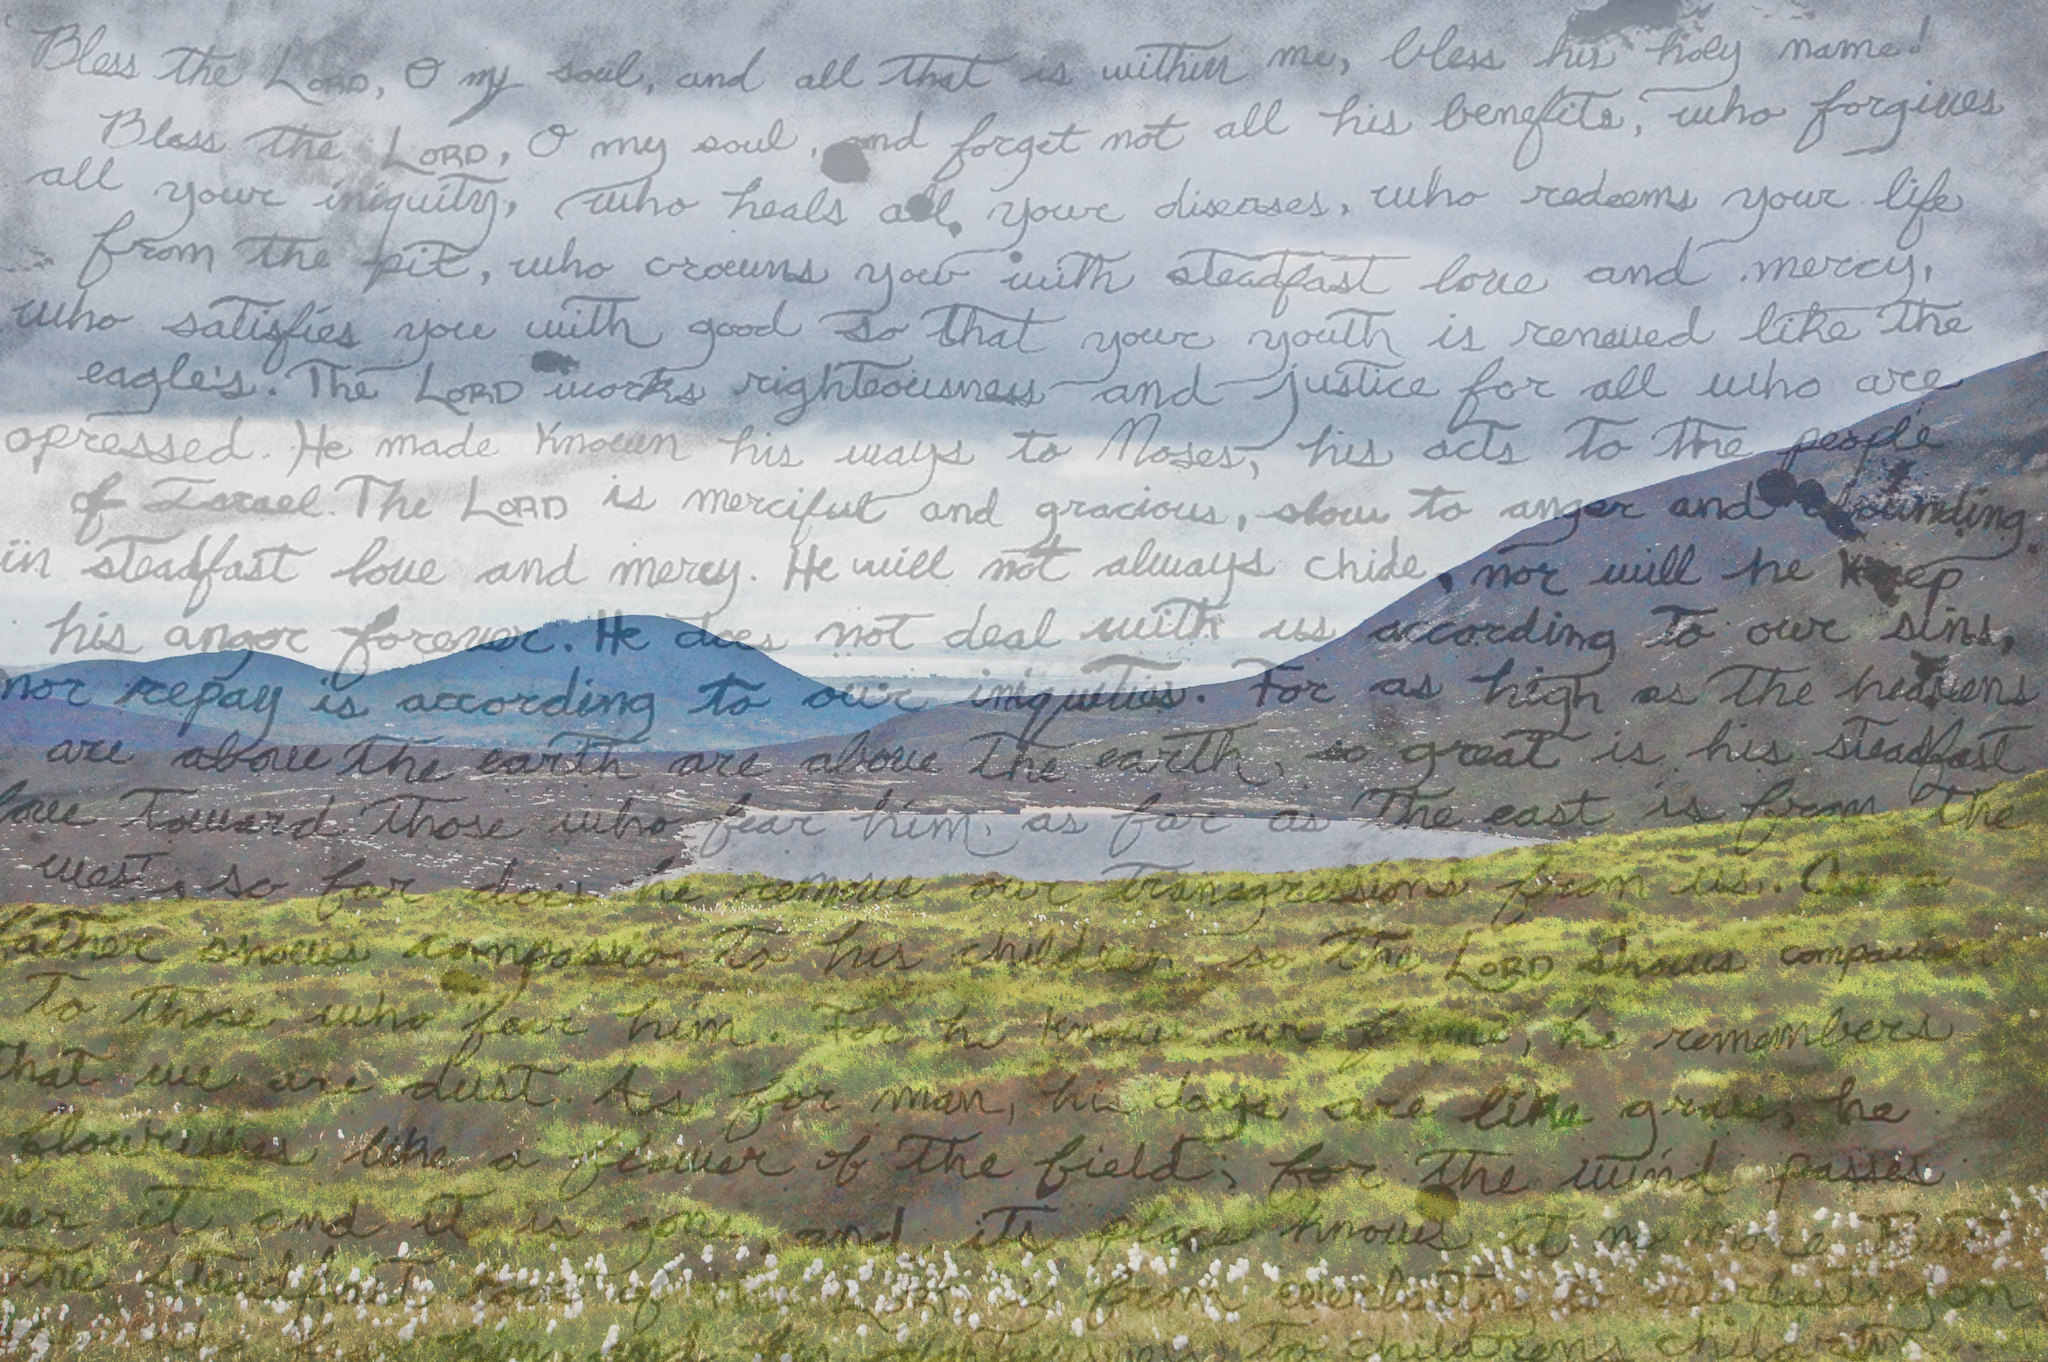 Bless the LORD, O my soul, and all that is within me, bless his holy name!
Bless the LORD, O my soul, and forget not all his benefits, who forgives
all your iniquity, who heals all your diseases, who redeems your life
from the pit, who crowns you with steadfast love and mercy,
who satisfies you with good so that your youth is renewed like the
eagle's. The LORD works righteousness and justice for all who are
opressed. He made known his ways to Moses, his acts to the people
of Israel. The LORD is merciful and gracious, slow to anger and abounding
in steadfast love and mercy. He will not always chide, nor will he keep
his anger forever. He does not deal with us according to our sins,
nor repay is according to our iniquities. For as high as the heavens
are above the earth are above the earth, so great is his steadfast
love toward those who fear him, as far as the east is from the
west, so far does he remove our transgressions from us. As a
father shows compassion to his children, so the LORD shows compassion
to those who fear him. For he knows our frame, he remembers
that we are dust. As for man, his days are like grass, he
flourishes like a flower of the field; for the wind passes
over it, and it is gone, and its place knows it no more. But
the steadfast love of the LORD is from everlasting to everlasting on
him, and his to childrens children